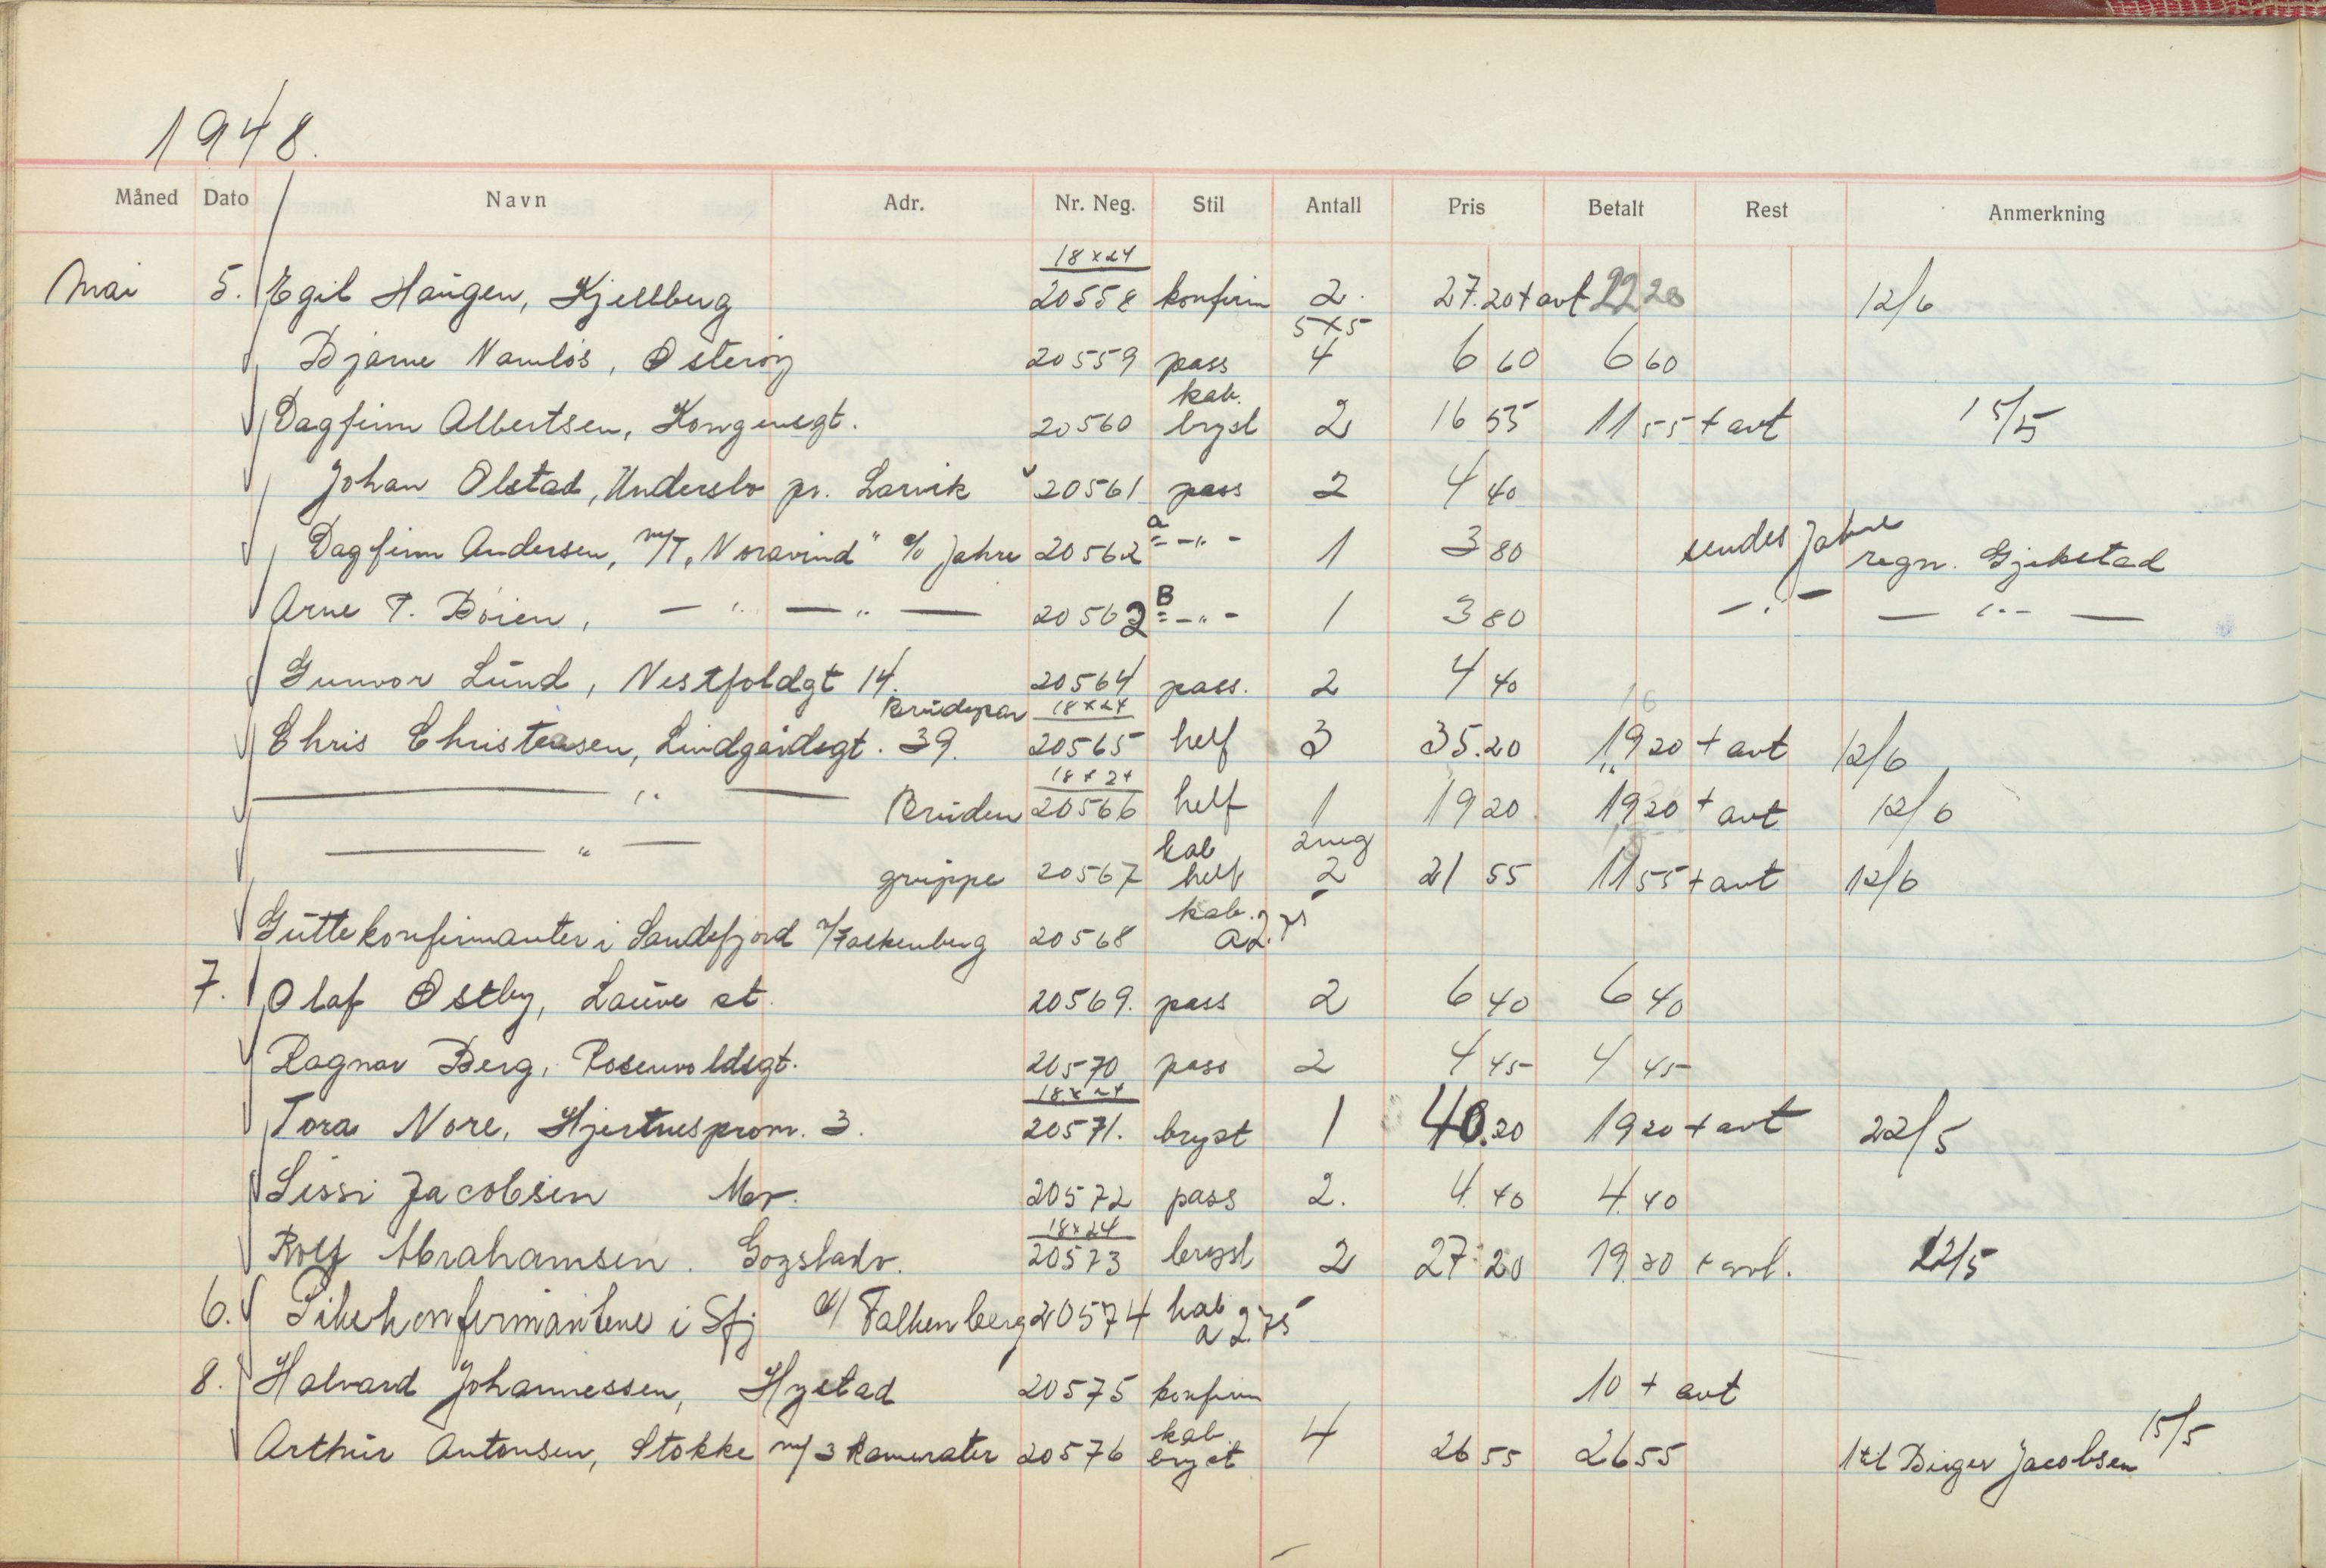 1948.
Måned Dato Navn Adr. Nr. Neg. Stil Antall Pris Betalt Rest Anmerkning
18x24
Mai 5. Egil Haugen, Kjellberg 20558 konfirm 2. 27.20 + avt 22 20 12/6
5x5
Bjarne Namløs, Østerøy 20559 pass 4 6 60 6 60
kab.
Dagfinn Albertsen, Kongensgt. 20560 bryst 2 16 55 11 55 + avt 15/5
Johan Olstad, Underslo pr. Larvik 20561 pass 2 4 40
Dagfinn Andersen, m/T „Noravind" c/o Jahre 20562 a = - „ - 1 3 80 sendes Jahre regn. Gjekstad
Arne T. Bøien, — „ — „ — 20562 B = - „ - 1 3 80 - „ - — „ —
Gunvor Lund, Vestfoldgt 14. 20564 pass. 2 4 40
Brudepar 18x24
Chris Christensen, Lindgårdsgt. 39. 20565 helf 3 35.20 19 20 + avt 12/6
18x24
— „ — Bruden 20566 helf 1 19 20 19 20 + avt 12/6
kab 2 neg
— „ — gruppe 20567 helf 2 21 55 11 55 + avt 12/6
kab.
Guttekonfirmanter i Sandefjord v/Falkenberg 20568 a 2.75
7. Olaf Østby, Lauve st. 20569. pass 2 6 40 6 40
Ragnar Berg, Rosenvoldsgt. 20570 pass 2 4 45 4 45
18x24
Tora Nore, Hjertnesprom. 3. 20571. bryst 1 40.20 19 20 + avt 22/5
Lissi Jacobsen Mor. 20572 pass 2. 4. 40 4. 40
18x24
Rolf Abrahamsen. Gogstadv. 20573 bryst 2 27 20 19. 20 + avt. 22/5
6. Pikekonfirmantene i Sfj v/ Falkenberg 20574 kab a 2.75
8. Halvard Johannessen, Hystad 20575 konfirm 10 + avt
kab 15/5
Arthur Antonsen, Stokke m/3 kamerater 20576 bryst 4 26 55 26 55 1 til Birger Jacobsen